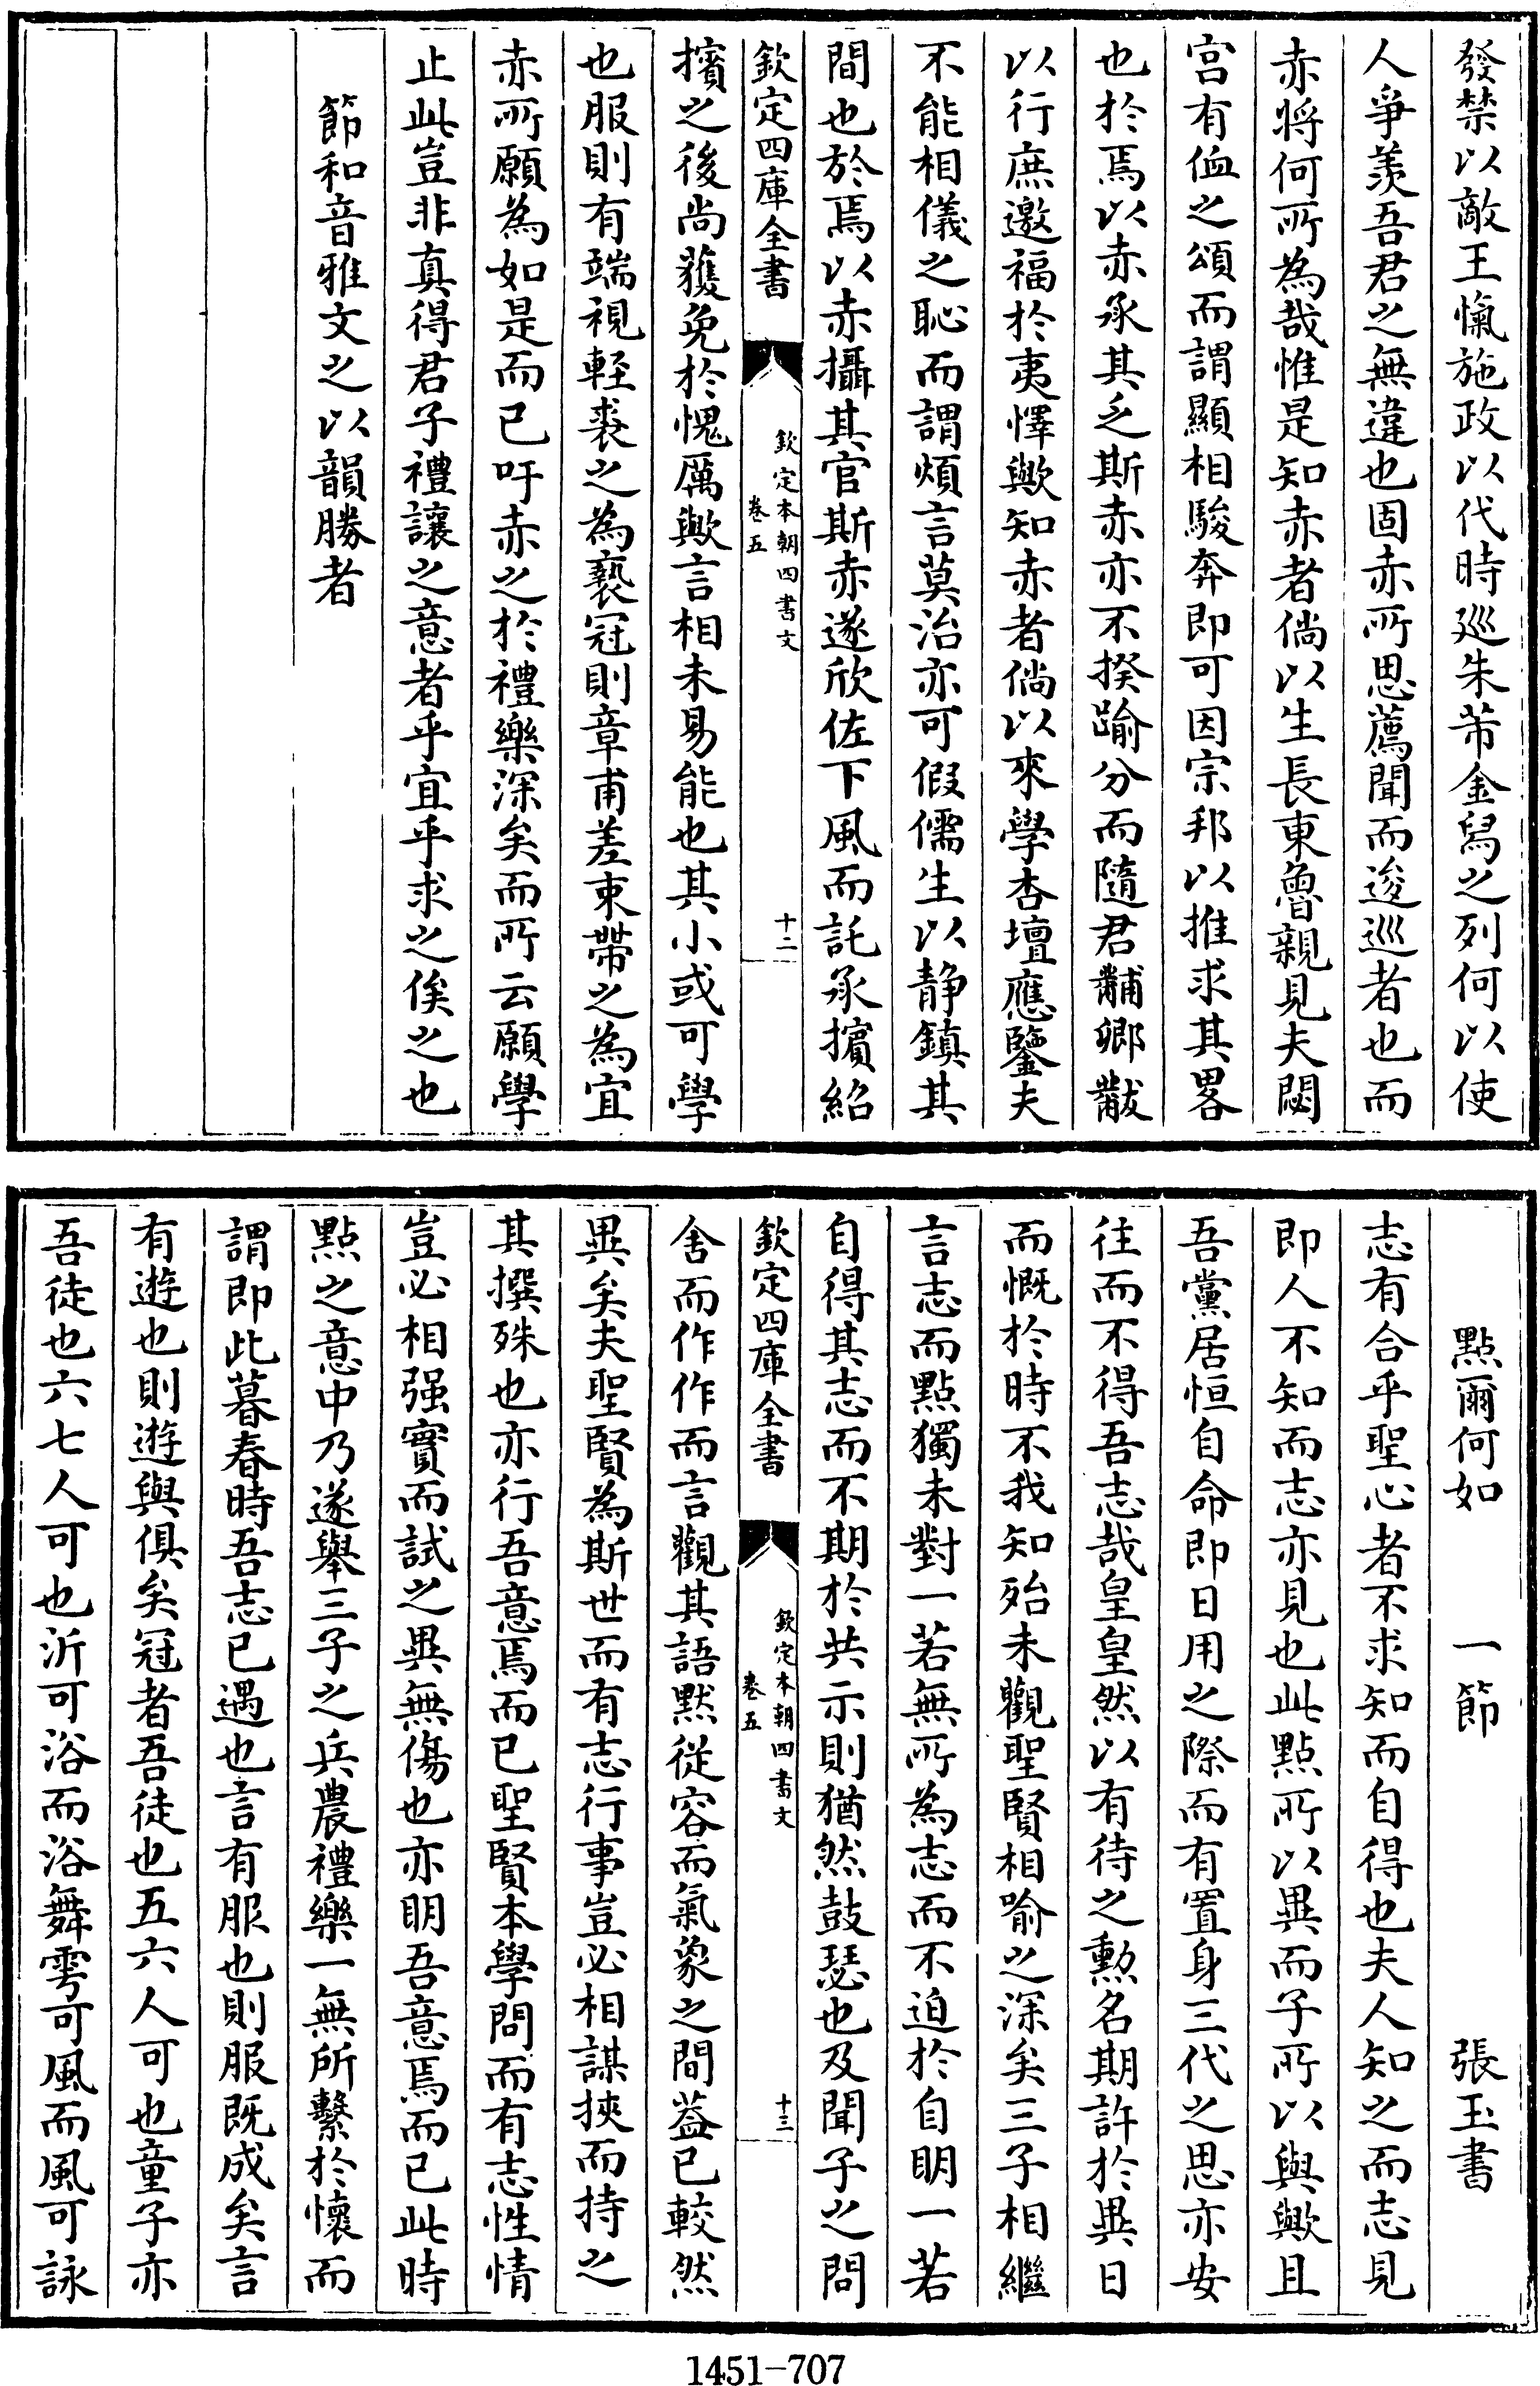 發禁以敵王愾施政以代時廵朱芾金舄之列何以使
人爭羨吾君之無違也固赤所思薦聞而逡巡者也而
赤將何所為哉惟是知赤者倘以生長東魯親見夫閟
宫有侐之頌而謂顯相駿奔即可因宗邦以推求其畧
也於焉以赤承其乏斯赤亦不揆踰分而隨君黼卿黻
以行庶邀福於夷懌歟知赤者倘以來學杏壇應鑒夫
不能相儀之恥而謂煩言莫治亦可假儒生以静鎮其
間也於焉以赤攝其官斯赤遂欣佐下風而託承擯紹
欽定四庫全書
欽定本朝四書文
卷五
十二
擯之後尚獲免於愧厲歟言相未易能也其小或可學
也服則有端視輕裘之為褻冠則章甫差束帶之為宜
赤所願為如是而已吁赤之於禮樂深矣而所云願學
止此豈非真得君子禮讓之意者乎宜乎求之俟之也
節和音雅文之以韻勝者
點爾何如 一節 張玉書
志有合乎聖心者不求知而自得也夫人知之而志見
即人不知而志亦見也此點所以異而子所以與歟且
吾黨居恒自命即日用之際而有置身三代之思亦安
往而不得吾志哉皇皇然以有待之勲名期許於異日
而慨於時不我知殆未觀聖賢相喻之深矣三子相繼
言志而點獨未對一若無所為志而不迫於自明一若
自得其志而不期於共示則猶然鼓瑟也及聞子之問
欽定四庫全書
欽定本朝四書文
卷五
十三
舍而作作而言觀其語黙從容而氣象之間葢已較然
異矣夫聖賢為斯世而有志行事豈必相謀挾而持之
其撰殊也亦行吾意焉而已聖賢本學問而有志性情
豈必相强實而試之異無傷也亦明吾意焉而已此時
點之意中乃遂舉三子之兵農禮樂一無所繫於懷而
謂即此暮春時吾志已遇也言有服也則服既成矣言
有遊也則遊與俱矣冠者吾徒也五六人可也童子亦
吾徒也六七人可也沂可浴而浴舞雩可風而風可詠
1451-707